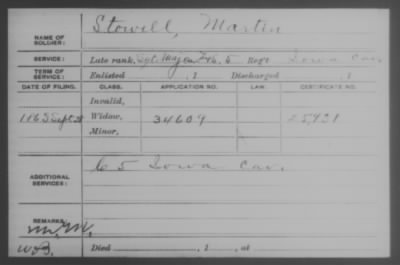 NAME OF SOLDIER: Stowell, Martin
SERVICE: Late rank, Sgt. Maj. Co. F & S, 5 Reg't Iowa Cav
TERM OF SERVICE: Enlisted , 1 Discharged , 1
DATE OF FILING. CLASS. APPLICATION NO. LAW. CERTIFICATE NO.
Invalid,
1863 Sept Widow, 34609 25,431
Minor,
ADDITIONAL SERVICES: C 5 Iowa Cav.
REMARKS:
Died , 1 , at